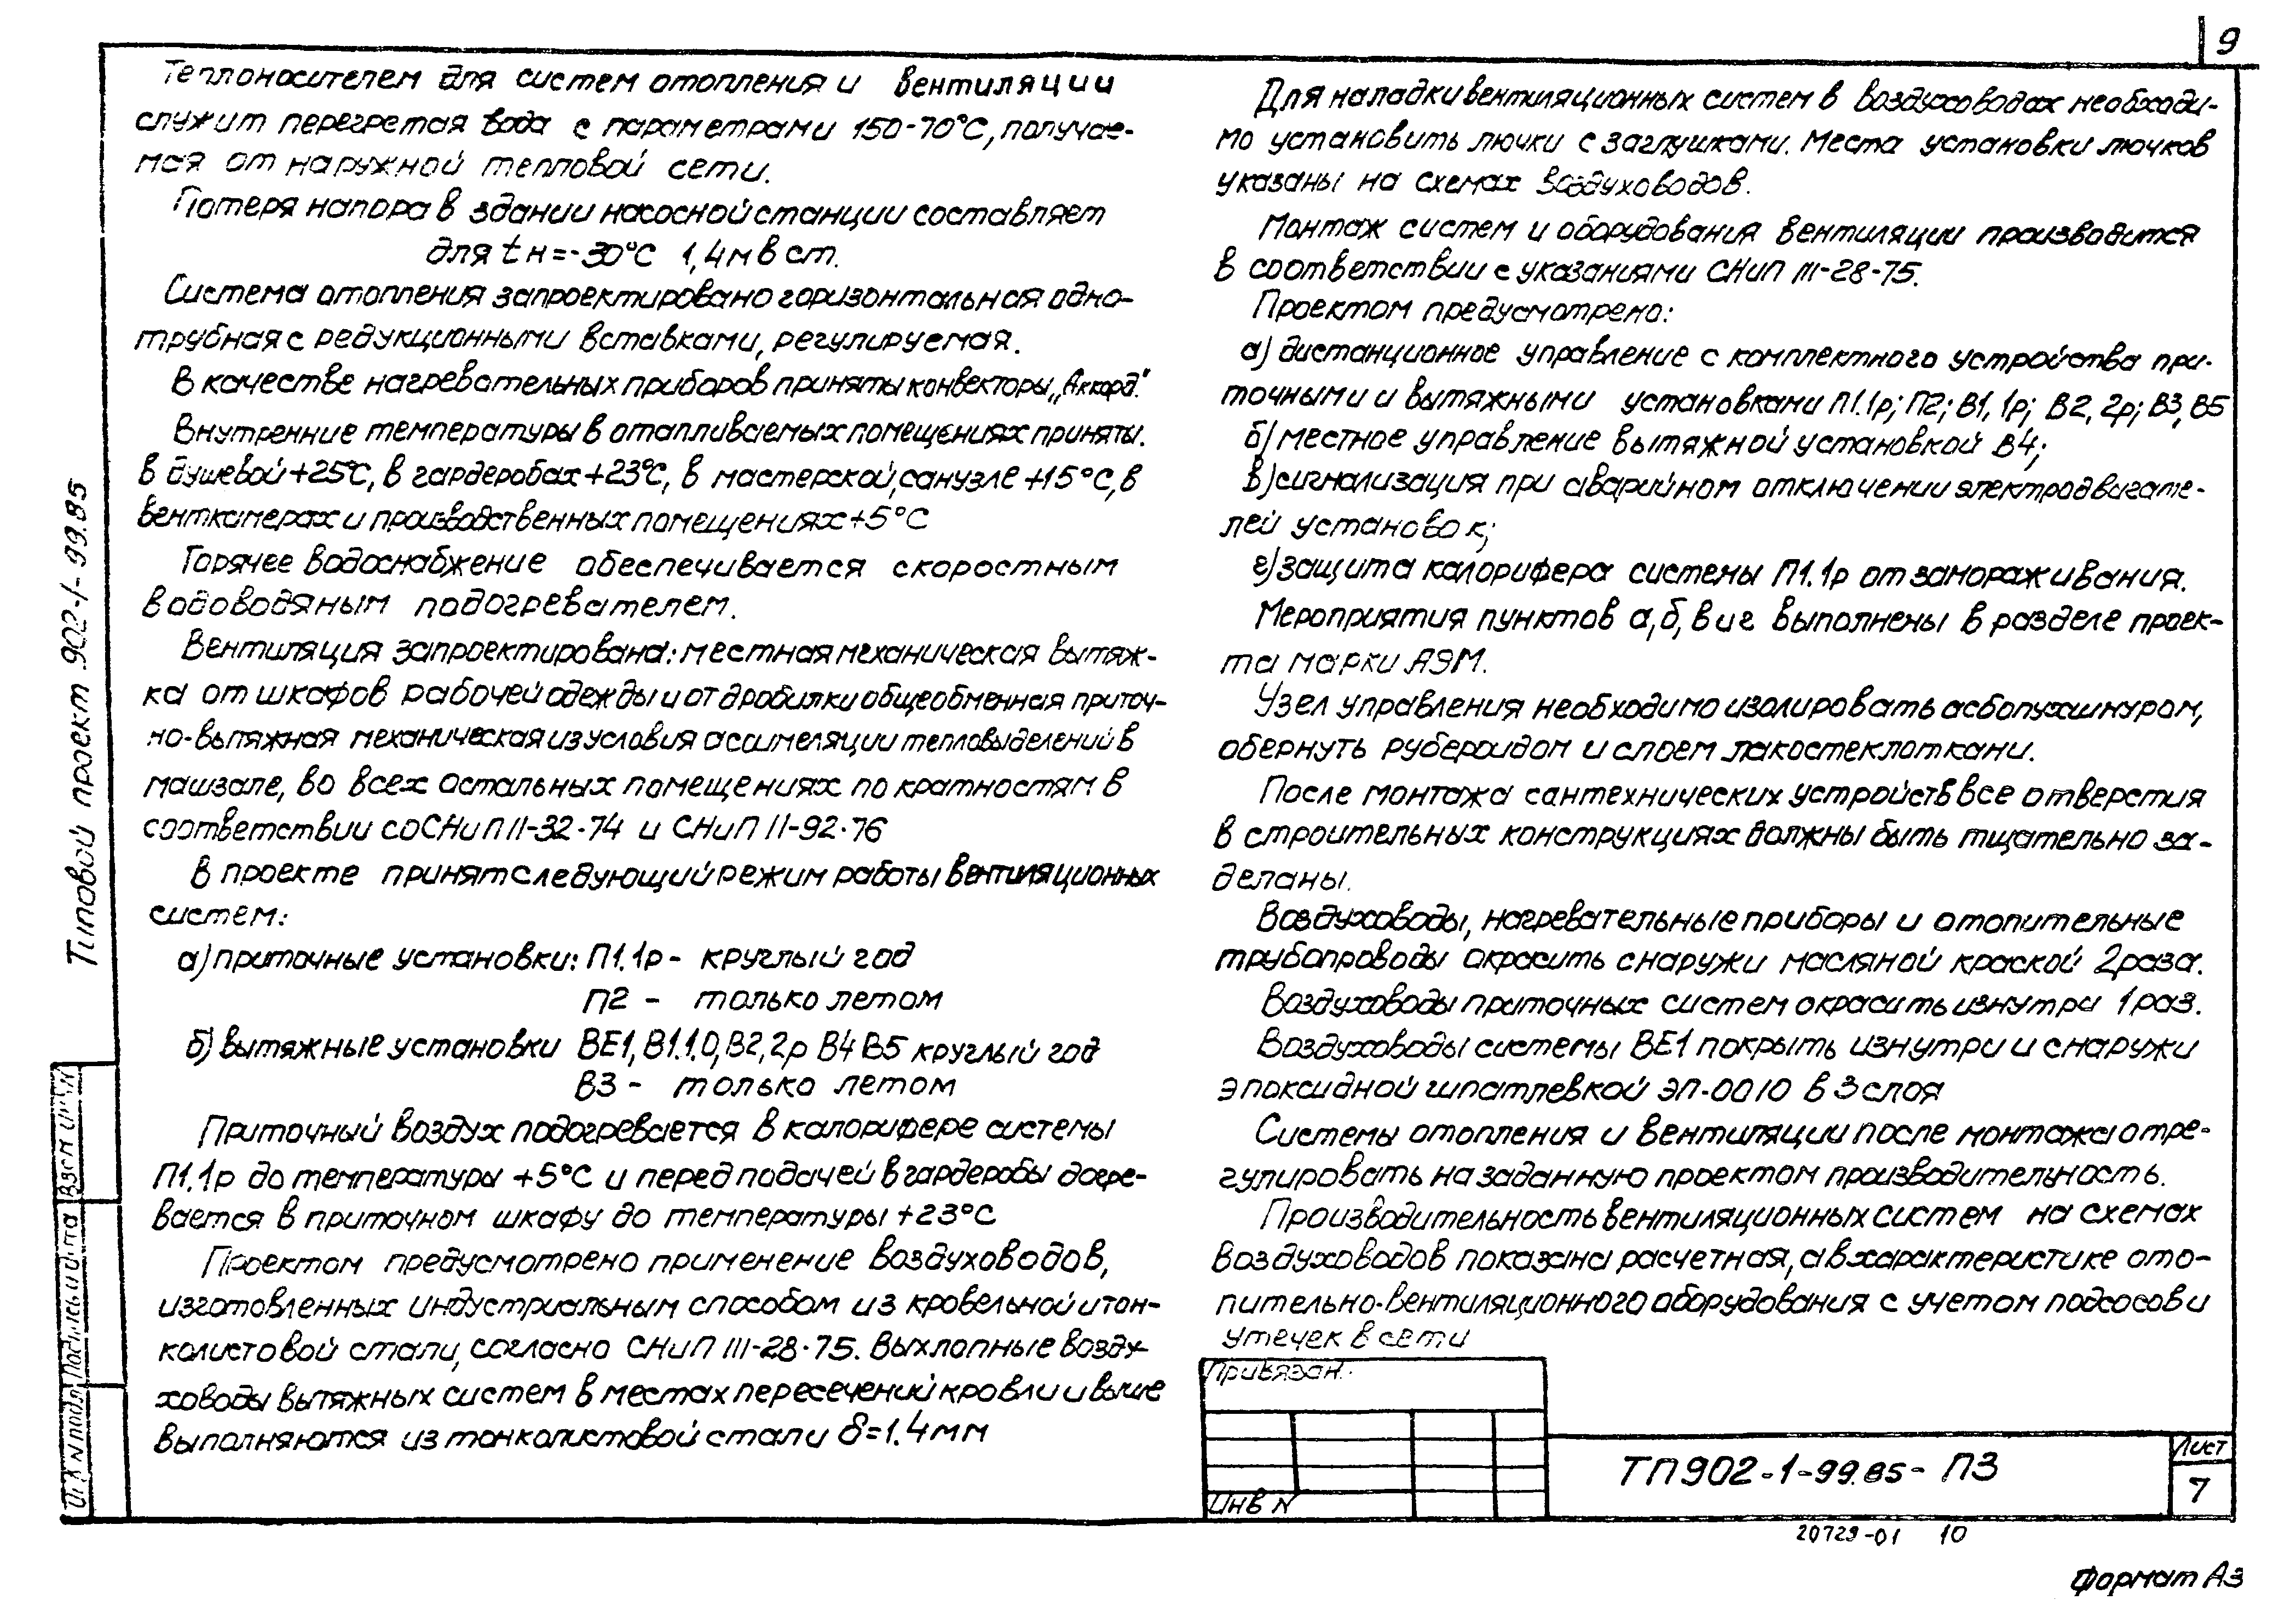 9
Теплоносителем для систем отопления и вентиляции
служит перегретая вода с параметрами 150-70°С, получае-
мая от наружной тепловой сети.
Потеря напора в здании насосной станции составляет
для tн=-30°С 1,4м в ст.
Система отопления запроектировано горизонтальная одно-
трубная с редукционными вставками, регулируемая.
В качестве нагревательных приборов приняты конвекторы „Аккорд".
Внутренние температуры в отапливаемых помещениях приняты.
в душевой +25°С, в гардеробах +23°С, в мастерской, санузле +15°С, в
венткамерах и производственных помещениях +5°С
Горячее водоснабжение обеспечивается скоростным
водоводяным подогревателем.
Вентиляция запроектирована: местная механическая вытяж-
ка от шкафов рабочей одежды и от дробилки общеобменная приточ-
но-вытяжная механическая из условия ассимеляции тепловыделений в
машзале, во всех остальных помещениях по кратностям в
соответствии со СНиП II-32-74 и СНиП II-92-76
В проекте принят следующий режим работы вентиляционных
систем:
а) приточные установки: П1.1р - круглый год
П2 - только летом
б) вытяжные установки ВЕ1, В1.1.0, В2, 2р В4 В5 круглый год
В3 - только летом
Приточный воздух подогревается в калорифере системы
П1.1р до температуры +5°С и перед подачей в гардеробы догре-
вается в приточном шкафу до температуры +23°С
Проектом предусмотрено применение воздуховодов,
изготовленных индустриальным способом из кровельной и тон-
колистовой стали, согласно СНиП III-28-75. Выхлопные возду-
ховоды вытяжных систем в местах пересечений кровли и выше
выполняются из тонколистовой стали δ=1.4мм
Для наладки вентиляционных систем в воздуховодах необходи-
мо установить лючки с заглушками. Места установки лючков
указаны на схемах воздуховодов.
Монтаж систем и оборудования вентиляции производится
в соответствии с указаниями СНиП III-28-75.
Проектом предусмотрено:
а) дистанционное управление с комплектного устройства при-
точными и вытяжными установками П1.1р; П2; В1, 1р; В2, 2р; В3, В5
б) местное управление вытяжной установкой В4;
в) сигнализация при аварийном отключении электродвигате-
лей установок;
г) защита калорифера системы П1.1р от замораживания.
Мероприятия пунктов а, б, в и г выполнены в разделе проек-
та марки АЭМ.
Узел управления необходимо изолировать асбопухшнуром,
обернуть рубероидом и слоем лакостеклоткани.
После монтажа сантехнических устройств все отверстия
в строительных конструкциях должны быть тщательно за-
деланы.
Воздуховоды, нагревательные приборы и отопительные
трубопроводы окрасить снаружи масляной краской 2 раза.
Воздуховоды приточных систем окрасить изнутри 1 раз.
Воздуховоды системы ВЕ1 покрыть изнутри и снаружи
эпоксидной шпатлевкой ЭП-0010 в 3 слоя
Системы отопления и вентиляции после монтажа отре-
гулировать на заданную проектом производительность.
Производительность вентиляционных систем на схемах
воздуховодов показана расчетная, а в характеристике ото-
пительно-вентиляционного оборудования с учетом подсосов и
утечек в сети
Привязан.
Инв N
ТП902-1-99.85- ПЗ
Лист
7
20729-01 10
Формат А3
Типовой проект 902-1-99.85
Взам инв N
Подпись и дата
Инв N подл